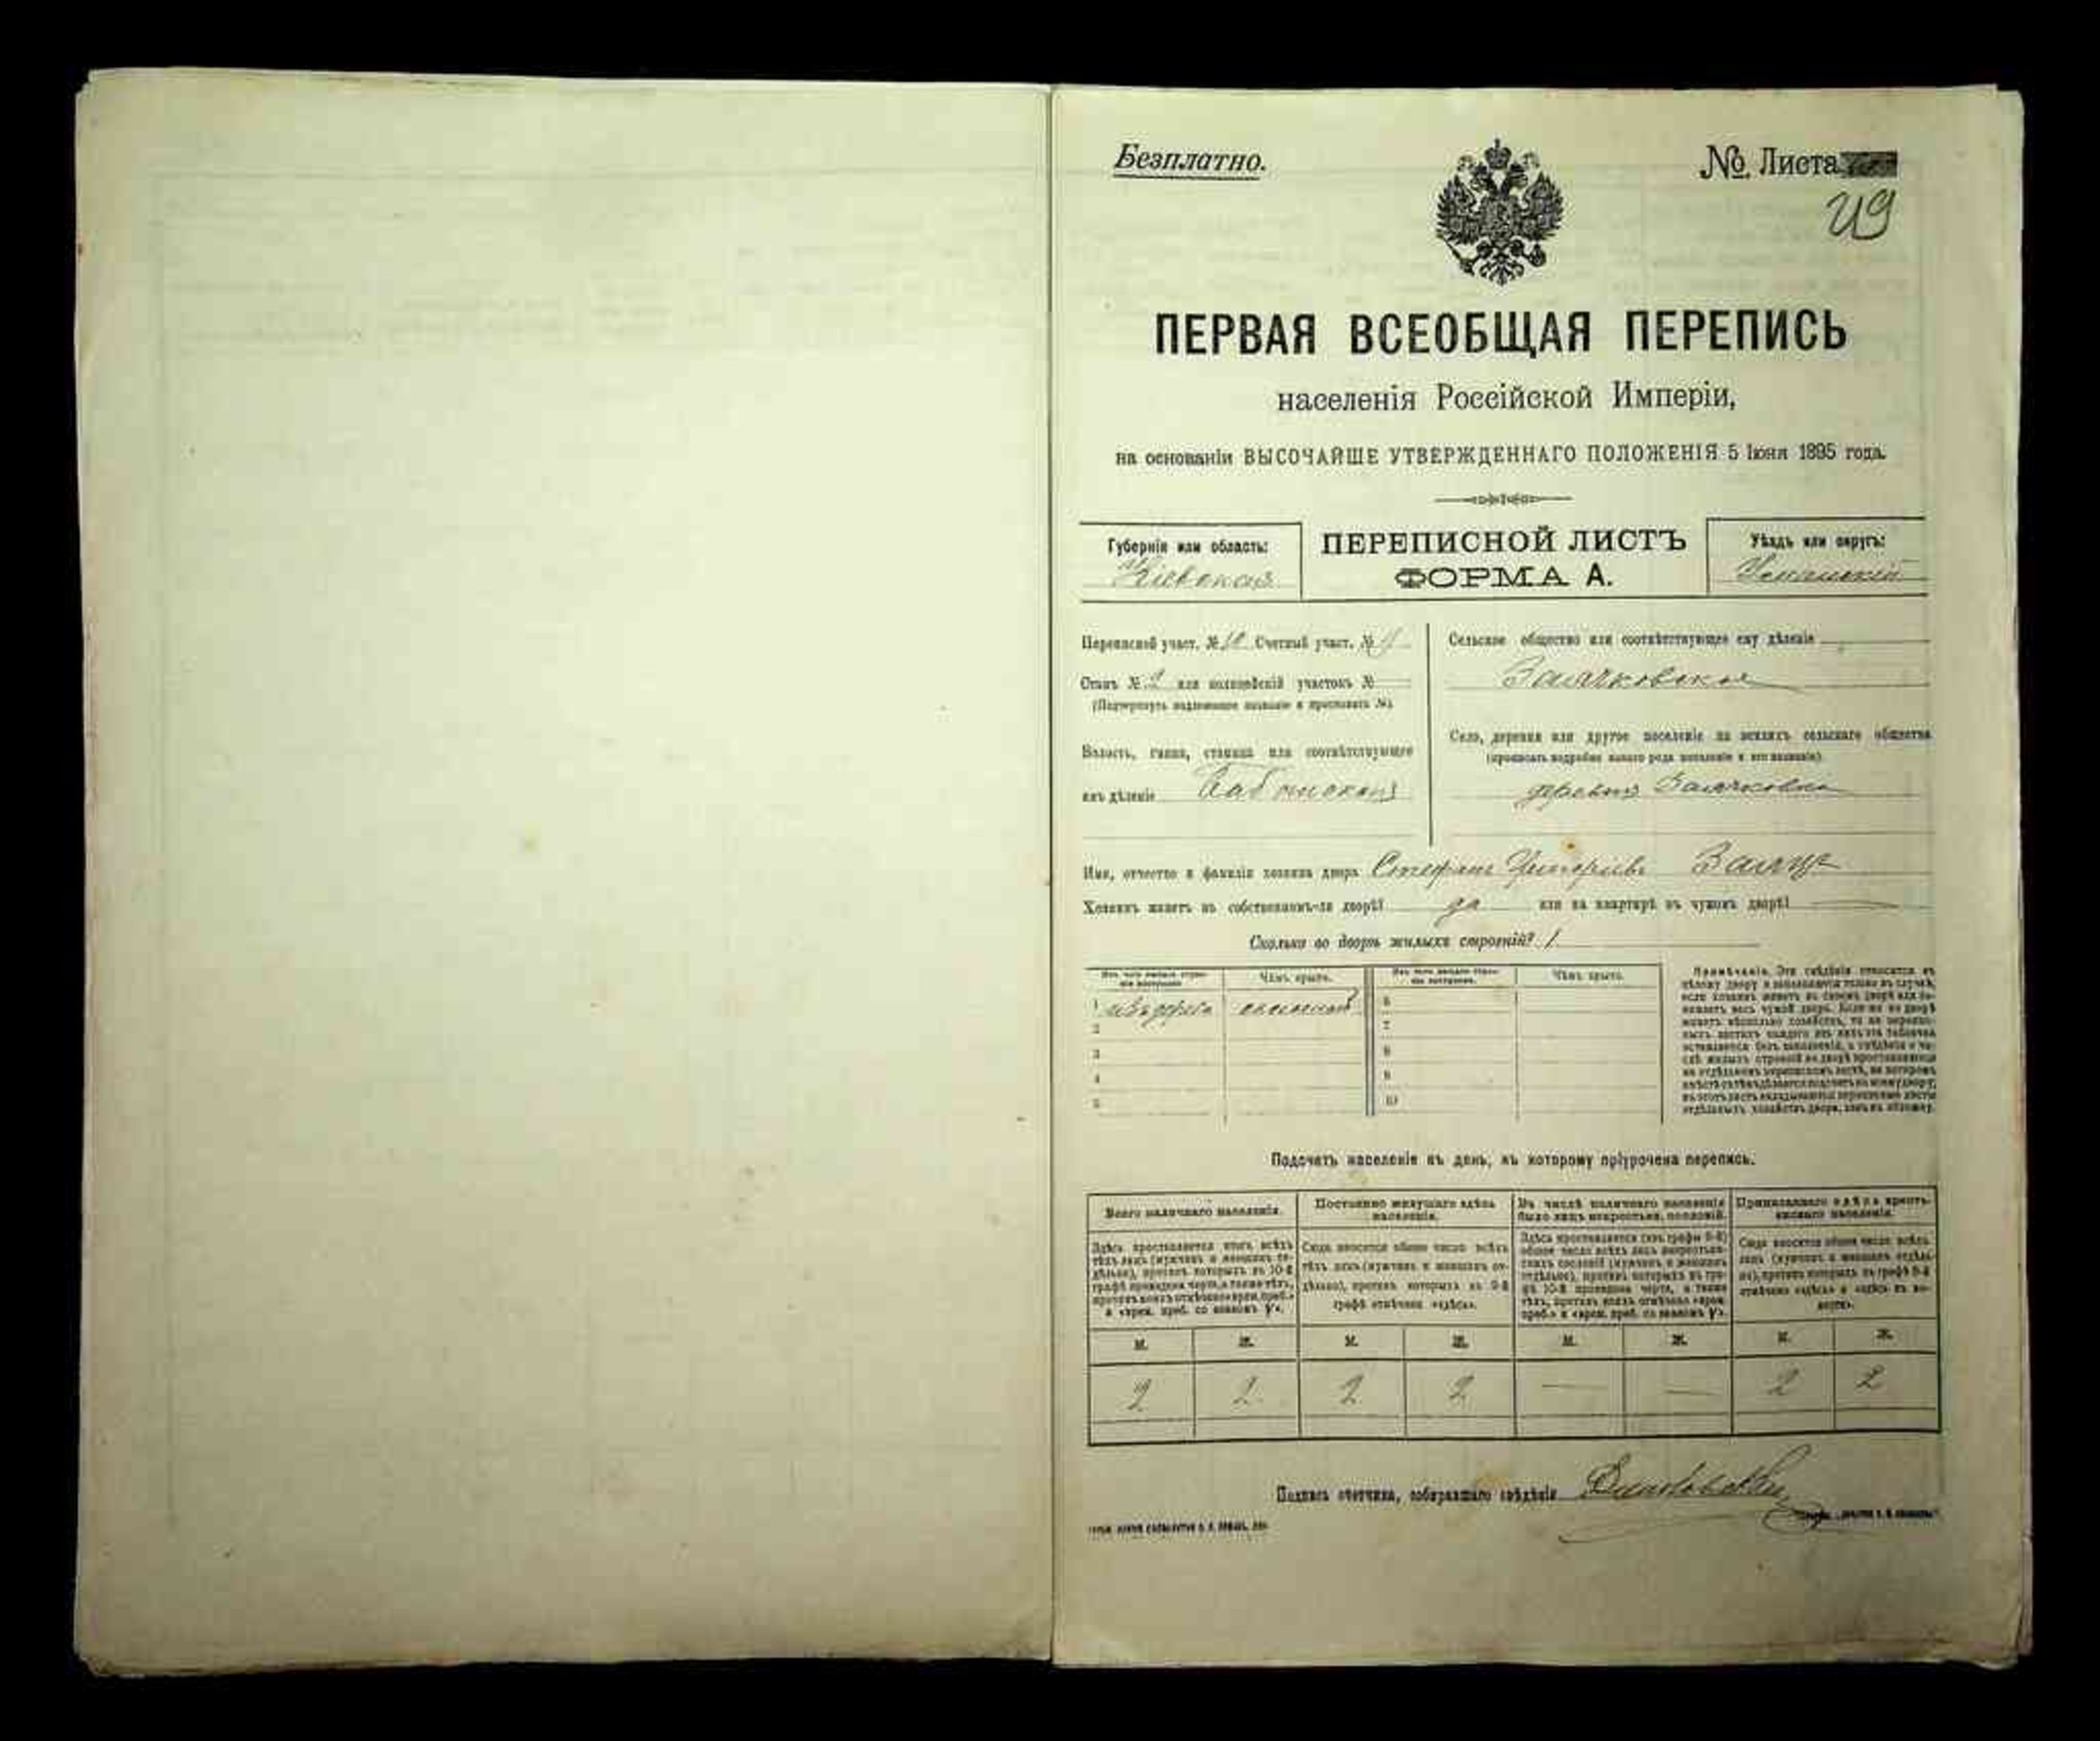 Безплатно.
№ Листа
49
ПЕРВАЯ ВСЕОБЩАЯ ПЕРЕПИСЬ
населенія Россійской Имперіи,
на основаніи ВЫСОЧАЙШЕ УТВЕРЖДЕННАГО ПОЛОЖЕНІЯ 5 Іюня 1895 года.
Губернія или область:
Кіевская
ПЕРЕПИСНОЙ ЛИСТЪ
ФОРМА А.
Уѣздъ или округъ:
Уманскій
Переписной участ. № Счетный участ. №
Станъ № 2 или полицейскій участокъ №
(Подчеркнуть надлежащее названіе и проставить №).
Волость, гмина, станица или соотвѣтствующее
имъ дѣленіе
Сельское общество или соотвѣтствующее ему дѣленіе
Заячковское
Село, деревня или другое поселеніе на земляхъ сельскаго общества
(прописать подробно какого рода поселеніе и его названіе).
деревня Заячковка
Имя, отчество и фамилія хозяина двора Стефанъ Григорьевъ Заяцъ
Хозяинъ живетъ въ собственномъ-ли дворѣ? да или на квартирѣ въ чужомъ дворѣ?
Сколько во дворѣ жилыхъ строеній? 1
Изъ чего каждое строеніе построено.
Чѣмъ крыто.
Изъ чего каждое строеніе построено.
Чѣмъ крыто.
1 изъ дерева соломой
2
3
4
5
6
7
8
9
10
Примѣчаніе. Эти свѣдѣнія относятся къ
цѣлому двору и заполняются только въ случаѣ,
если хозяинъ живетъ въ своемъ дворѣ или за-
нимаетъ весь чужой дворъ. Если же во дворѣ
живутъ нѣсколько хозяйствъ, то на перепис-
ныхъ листахъ каждаго изъ нихъ эта табличка
оставляется безъ заполненія, а свѣдѣнія о чи-
слѣ жилыхъ строеній во дворѣ проставляются
на отдѣльномъ переписномъ листѣ, на которомъ
вмѣстѣ съ тѣмъ дѣлается подсчетъ по всему двору;
въ этотъ листъ вкладываются переписные листы
отдѣльныхъ хозяйствъ двора, какъ въ обложку.
Подсчетъ населенія къ день, къ которому пріурочена перепись.
Всего наличнаго населенія.
Здѣсь проставляется итогъ всѣхъ
тѣхъ лицъ (мужчинъ и женщинъ от-
дѣльно), противъ которыхъ въ 10-й
графѣ проведена черта, а также тѣхъ,
противъ коихъ отмѣчено «врем. преб.»
и «врем. преб. со знакомъ V».
Постоянно живущаго здѣсь
населенія.
Сюда вносится общее число всѣхъ
тѣхъ лицъ (мужчинъ и женщинъ от-
дѣльно), противъ которыхъ въ 9-й
графѣ отмѣчено «здѣсь».
Въ числѣ наличнаго населенія
было лицъ некрестьян. сословій.
Здѣсь проставляется (изъ графы 9-й)
общее число всѣхъ лицъ некрестьян-
скихъ сословій (мужчинъ и женщинъ
отдѣльно), противъ которыхъ въ гра-
фѣ 10-й проведена черта, а также
тѣхъ, противъ коихъ отмѣчено «врем.
преб.» и «врем. преб. со знакомъ V».
Приписаннаго здѣсь кресть-
янскаго населенія.
Сюда вносится общее число всѣхъ
лицъ (мужчинъ и женщинъ отдѣль-
но), противъ которыхъ въ графѣ 8-й
отмѣчено «здѣсь» и «здѣсь въ во-
лости».
М. Ж. М. Ж. М. Ж. М. Ж.
2 2 2 2 — — 2 2
Подпись счетчика, собиравшаго свѣдѣнія